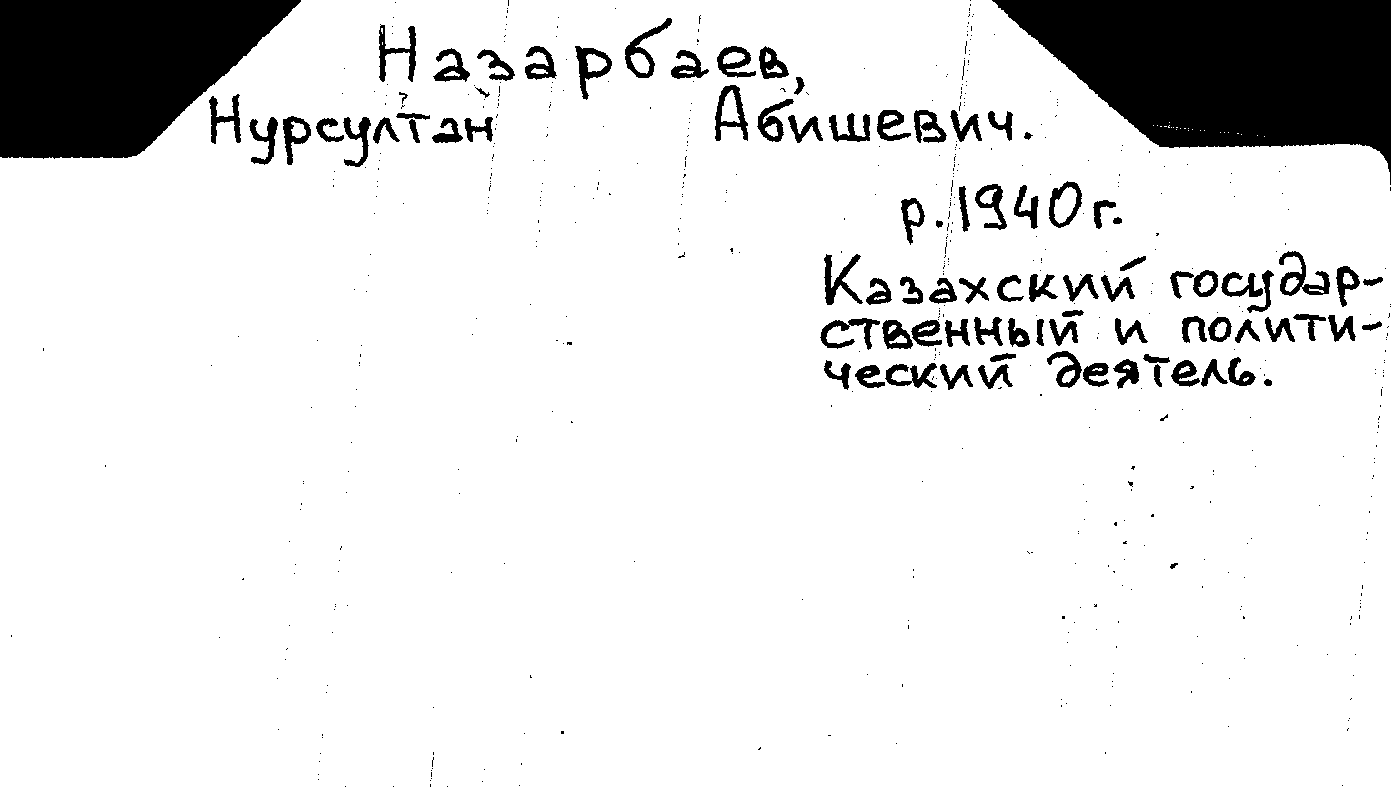 Назарбаев,
Нурсултан Абишевич.
р. 1940 г.
Казахский государ-
ственный и полити-
ческий деятель.